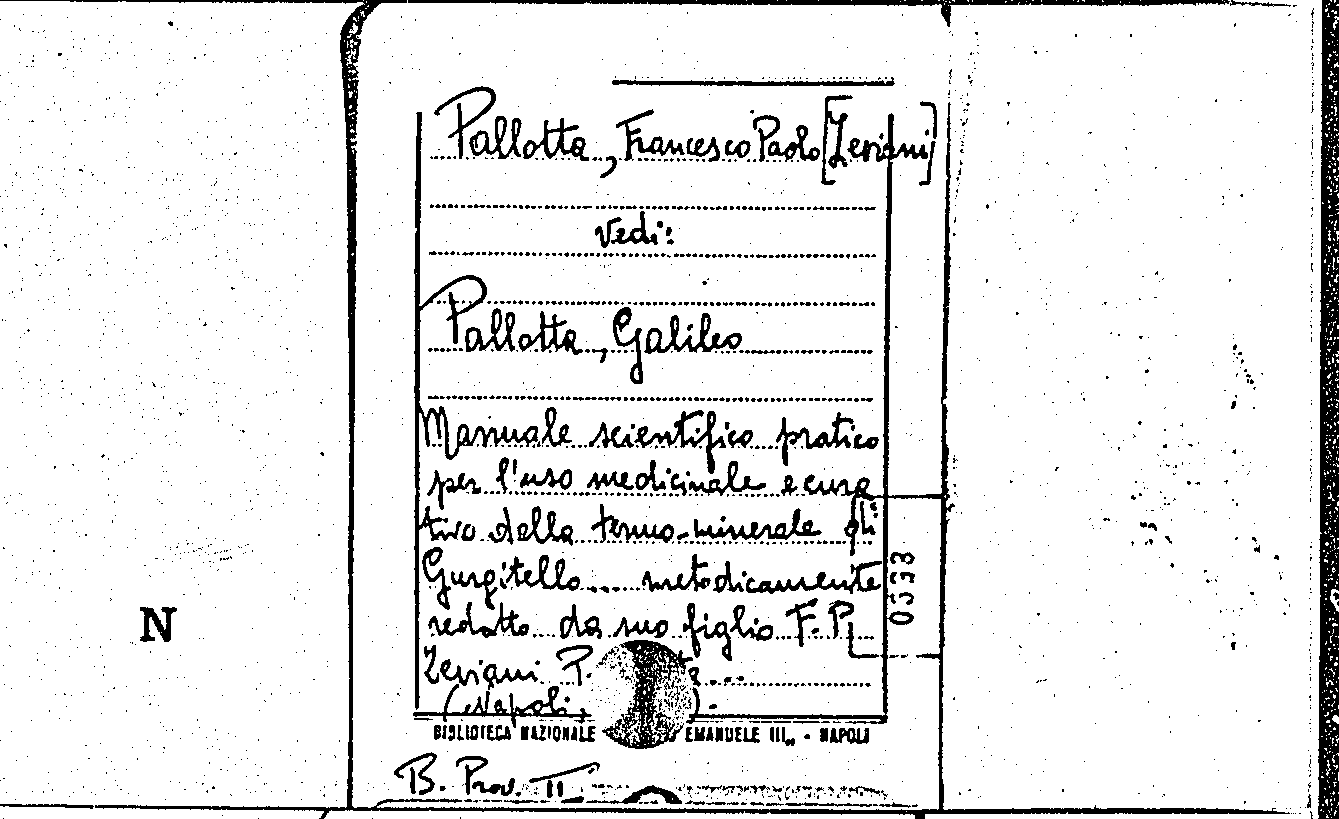 Pallotta, Francesco Paolo [Zeviani]
Vedi:
Pallotta, Galileo
Manuale scientifico pratico
per l'uso medicinale e cura
tivo della termo-minerale di
Gurgitello... metodicamente
redatto da suo figlio F. P.
Zeviani P.
(Napoli,
BIBLIOTECA NAZIONALE EMANUELE III„ - NAPOLI
B. Prov. II
0553
N